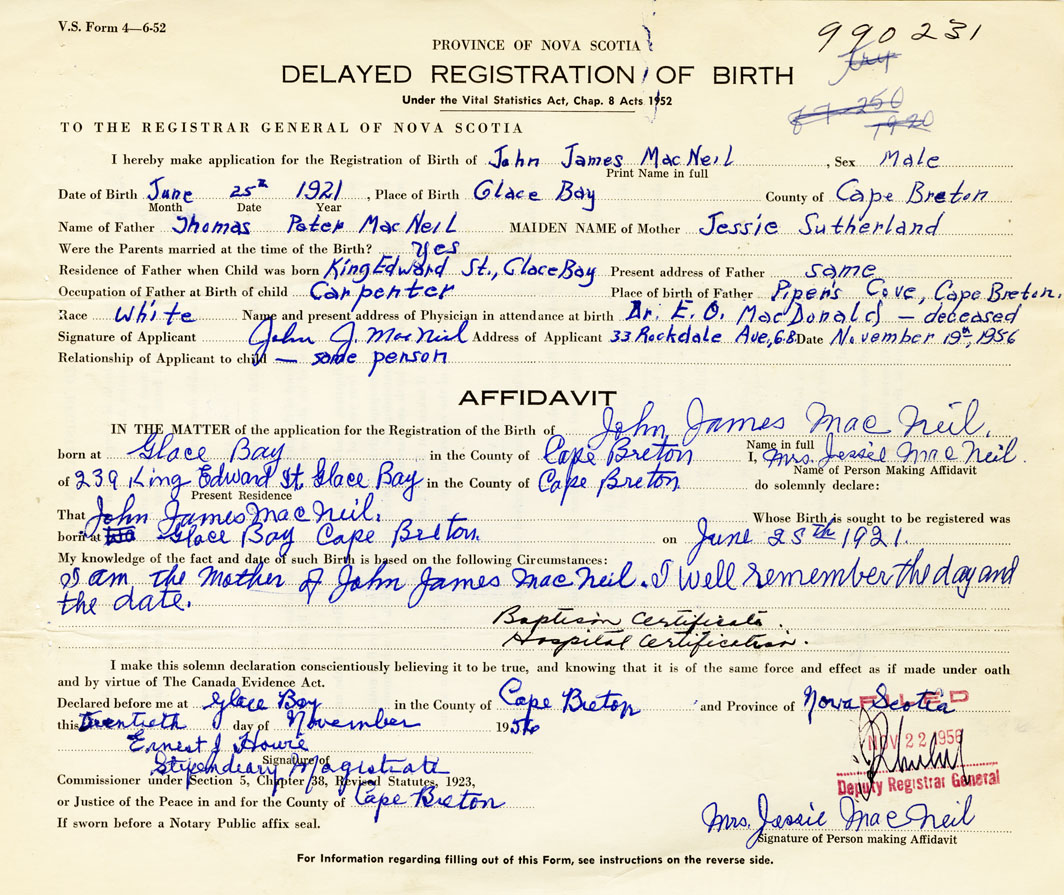 V.S. Form 4—6-52
990231
PROVINCE OF NOVA SCOTIA
DELAYED REGISTRATION OF BIRTH
Under the Vital Statistics Act, Chap. 8 Acts 1952
TO THE REGISTRAR GENERAL OF NOVA SCOTIA
I hereby make application for the Registration of Birth of John James MacNeil, Sex Male
Print Name in full
Date of Birth June 25th 1921, Place of Birth Glace Bay County of Cape Breton
Month Date Year
Name of Father Thomas Peter MacNeil MAIDEN NAME of Mother Jessie Sutherland
Were the Parents married at the time of the Birth? Yes
Residence of Father when Child was born King Edward St., Glace Bay Present address of Father same
Occupation of Father at Birth of child Carpenter Place of birth of Father Piper's Cove, Cape Breton.
Race White Name and present address of Physician in attendance at birth Dr. E. O. MacDonald — deceased
Signature of Applicant John J. MacNeil Address of Applicant 33 Rockdale Ave, G.B. Date November 19th, 1956
Relationship of Applicant to child — same person
AFFIDAVIT
IN THE MATTER of the application for the Registration of the Birth of John James MacNeil.
Name in full
born at Glace Bay in the County of Cape Breton I, Mrs. Jessie MacNeil.
Name of Person Making Affidavit
of 239 King Edward St. Glace Bay in the County of Cape Breton do solemnly declare:
Present Residence
That John James MacNeil. Whose Birth is sought to be registered was
born at Glace Bay Cape Breton. on June 25th 1921.
My knowledge of the fact and date of such Birth is based on the following Circumstances:
I am the Mother of John James MacNeil. I well remember the day and
the date.
Baptism Certificate.
Hospital Certification.
I make this solemn declaration conscientiously believing it to be true, and knowing that it is of the same force and effect as if made under oath
and by virtue of The Canada Evidence Act.
Declared before me at Glace Bay in the County of Cape Breton and Province of Nova Scotia
FILED
this Twentieth day of November 1956
NOV 22 1956
Ernest J Howie
Signature of
Stipendiary Magistrate
Commissioner under Section 5, Chapter 38, Revised Statutes, 1923,
Deputy Registrar General
or Justice of the Peace in and for the County of Cape Breton
Mrs. Jessie MacNeil
If sworn before a Notary Public affix seal.
Signature of Person making Affidavit
For Information regarding filling out of this Form, see instructions on the reverse side.